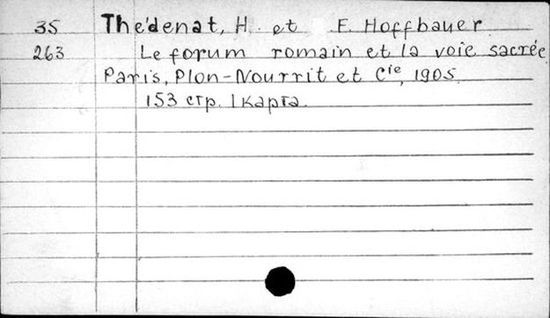 35 Thédenat, H. et F. Hoffbauer.
263 Le forum romain et la voie sacrée
Paris, Plon-Nourrit et Cie, 1905.
153 стр. 1 карта.